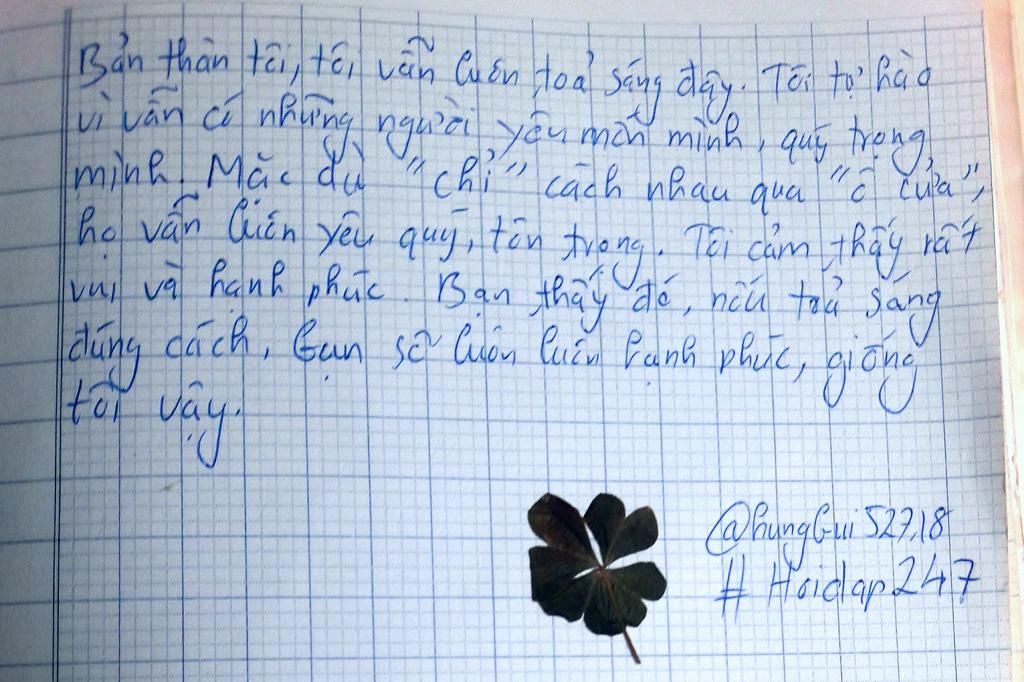 Bản thân tôi, tôi vẫn luôn toả sáng đấy. Tôi tự hào
vì vẫn có những người yêu mến mình, quý trọng
mình. Mặc dù "chỉ" cách nhau qua "ô cửa",
họ vẫn luôn yêu quý, tôn trọng. Tôi cảm thấy rất
vui và hạnh phúc. Bạn thấy đó, nếu toả sáng
đúng cách, bạn sẽ luôn luôn hạnh phúc, giống
tôi vậy.
@hungbui52718
#Hoidap247